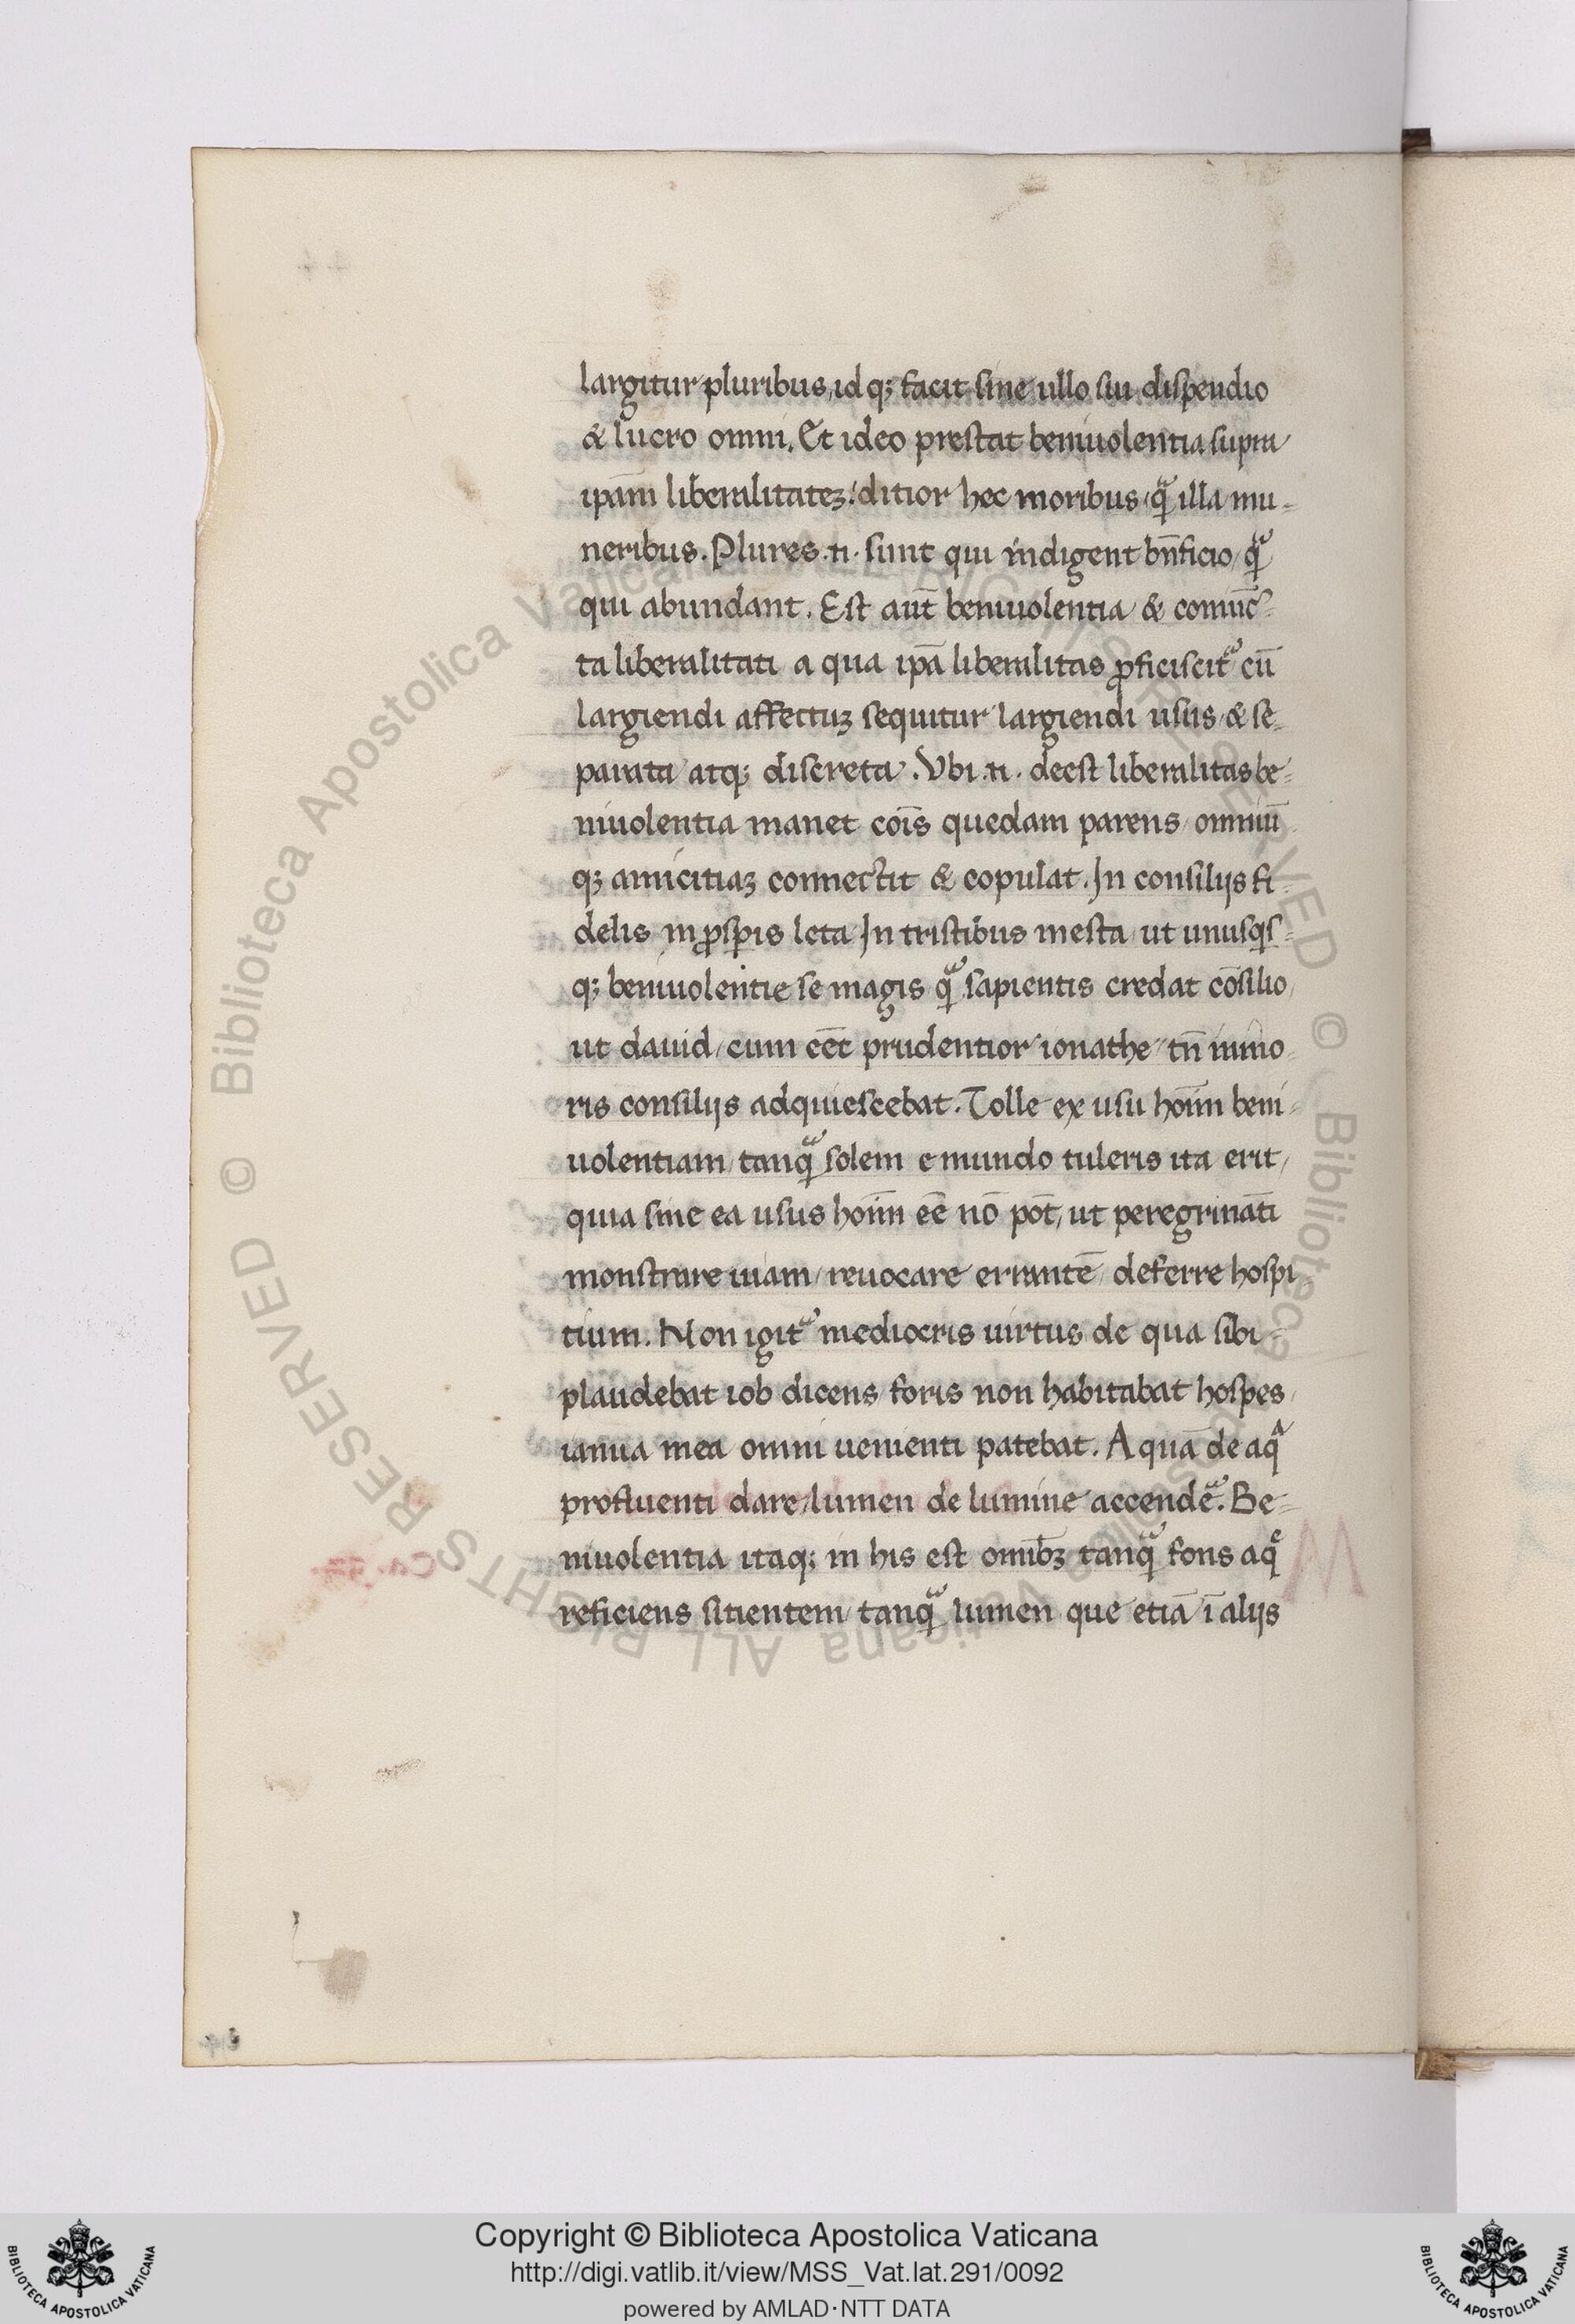 largitur pluribus, idq; facit sine ullo sui dispendio
& lucro omni. Et ideo prestat beniuolentia supra
ipām liberalitateꝫ: ditior hec moribus qͣ̄ illa mu-
neribus. Plures .n. sunt qui indigent bn̄ficio, qͣ̄
qui abundant. Est aut̄ beniuolentia & comūc-
ta liberalitati a qua ipā liberalitas ꝓficiscit᷑ cū
largiendi affectuꝫ sequitur largiendi usus, & se-
parata atq; discreta. Vbi .n. deest liberalitas be-
niuolentia manet cōis quedam parens omniū
q; amicitiaꝫ connectit & copulat. In consilijs fi-
delis in ꝓspis leta In tristibus mesta ut unusqs-
q; beniuolentie se magis qͣ̄ sapientis credat cōsilio,
ut dauid, cum eēt prudentior ionathe tn̄ iunio-
ris consilijs adquiescebat. Tolle ex usu hoīm beni-
uolentiam, tanqͣ̄ solem e mundo tuleris ita erit,
quia sine ea usus hoīm eē nō pōt, ut peregrinātī
monstrare uiam, reuocare errantē deferre hospi
tium. Non igit᷑ mediocris uirtus de qua sibi-
plaudebat iob dicens foris non habitabat hospes,
ianua mea omni uenienti patebat. Aquā de aqͣ
profluenti dare, lumen de lumine accendē᷑. Be-
niuolentia itaq; in his est omībꝫ tanqͣ̄ fons aqͤ
reficiens sitientem tanqͣ̄ lumen que etiā ī alijs
© Biblioteca Apostolica Vaticana ALL RIGHTS RESERVED
Copyright © Biblioteca Apostolica Vaticana
http://digi.vatlib.it/view/MSS_Vat.lat.291/0092
powered by AMLAD·NTT DATA
BIBLIOTECA APOSTOLICA VATICANA
BIBLIOTECA APOSTOLICA VATICANA